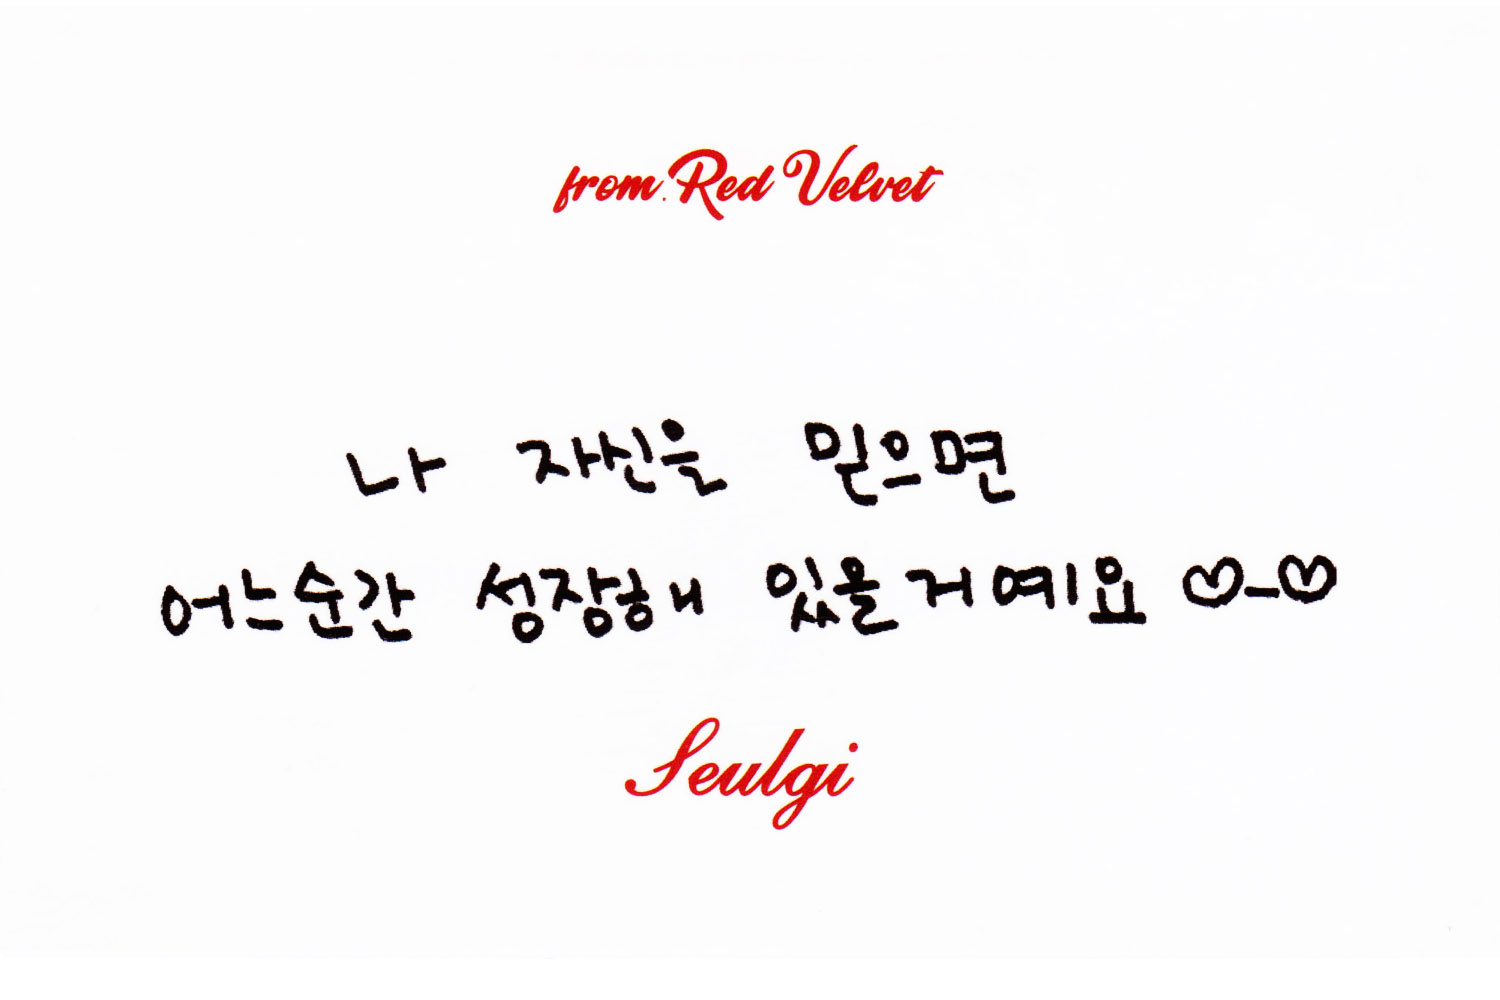 from. Red Velvet
나 자신을 믿으면
어느순간 성장해 있을거예요 ♡-♡
Seulgi